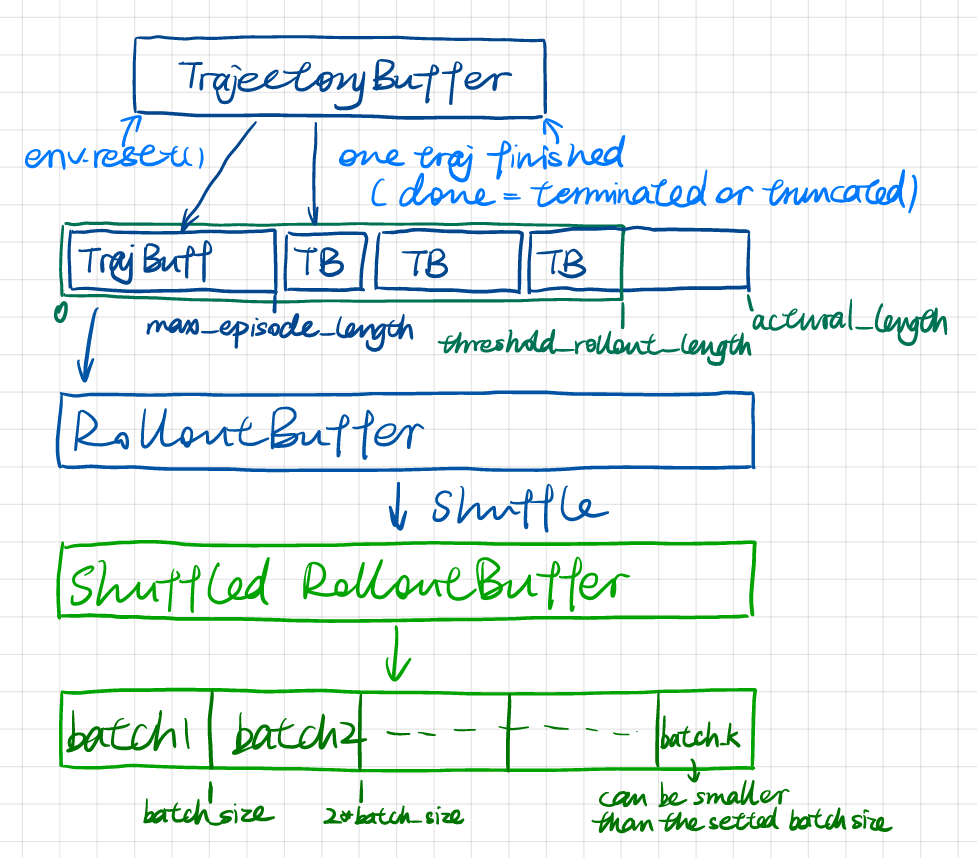 TrajectoryBuffer
env.reset()
one traj finished
(done = terminated or truncated)
TrajBuff
TB
TB
TB
0
max_episode_length
threshold_rollout_length
actural_length
RolloutBuffer
Shuffle
Shuffled RolloutBuffer
batch1
batch2
batch_k
batch_size
2*batch_size
can be smaller
than the setted batch size